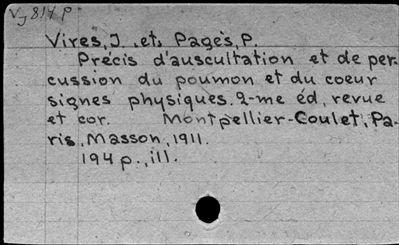 Vires, J. et, Pagès, P.
Précis d'auscultation et de per-
cussion du poumon et du coeur
signes physiques. 2-me éd, revue
et cor. Montpellier-Coulet, Pa-
ris, Masson, 1911.
194 p., ill.